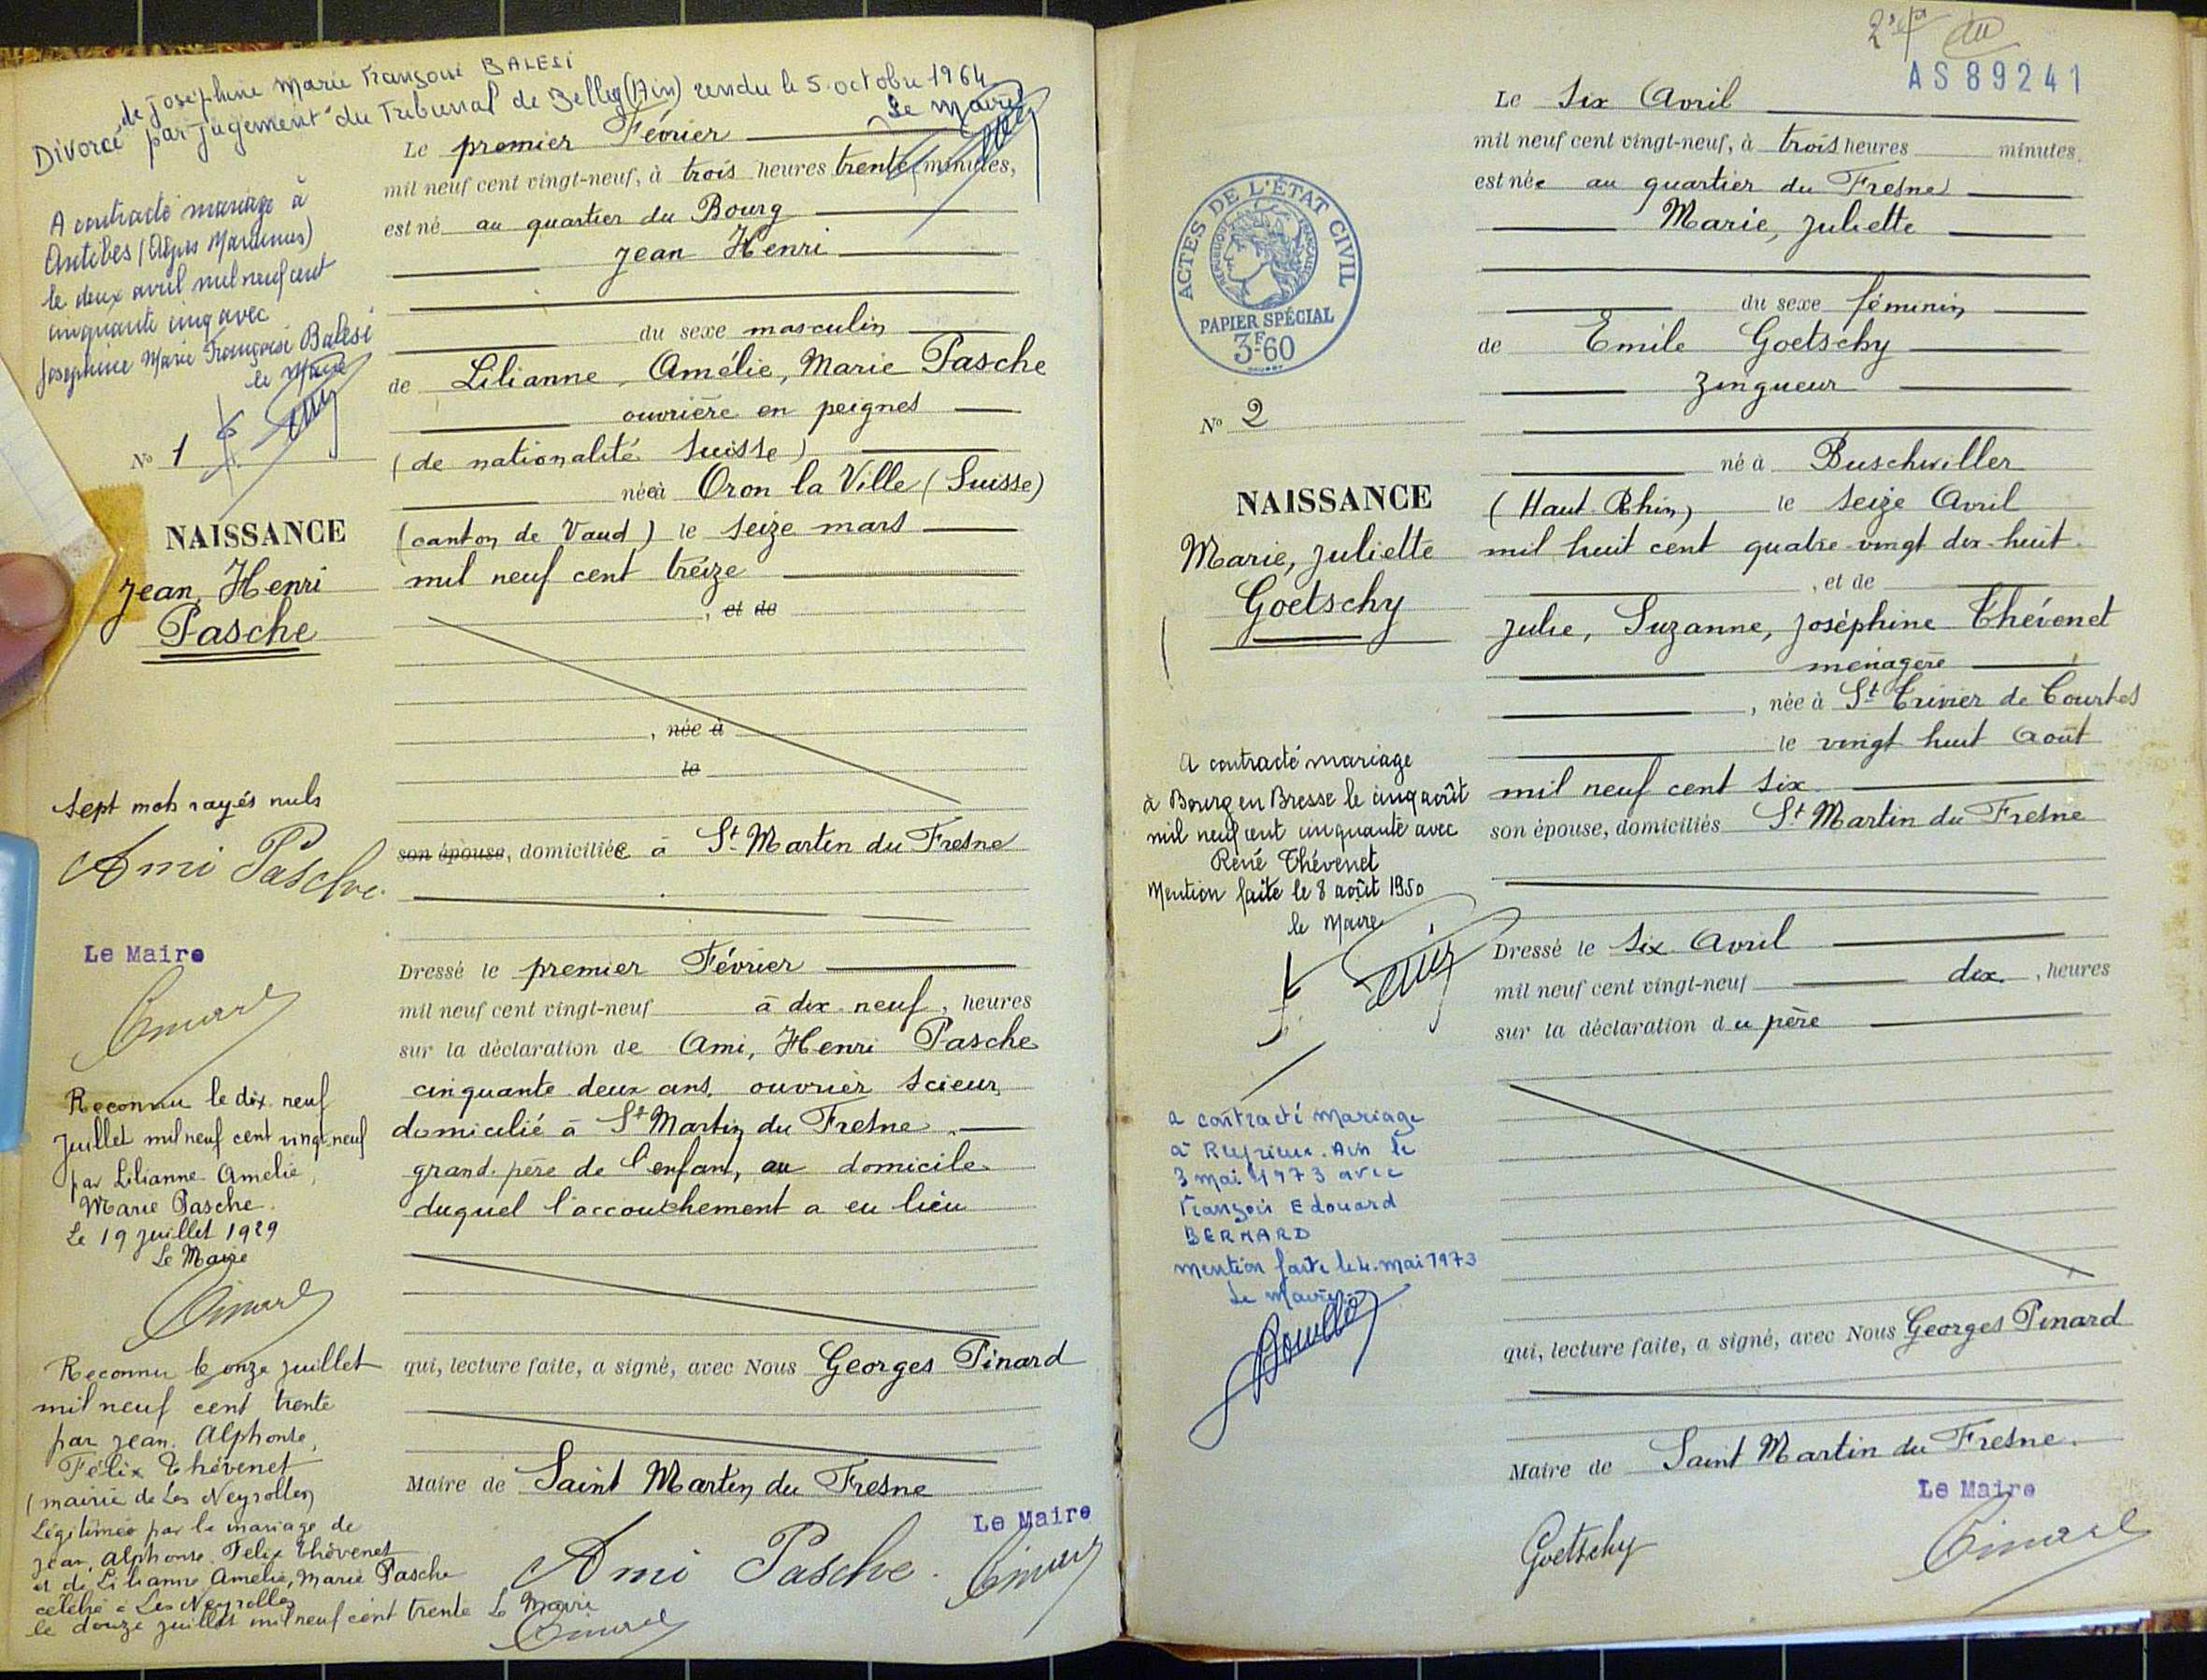 de Joséphine Marie Françoise BALESI
Divorcé par jugement du Tribunal de Belley (Ain) rendu le 5 octobre 1964
Le Maire
A contracté mariage à
Antibes (Alpes Maritimes)
le deux avril mil neuf cent
cinquante cinq avec
Joséphine Marie Françoise Balesi
le Maire
N° 1
NAISSANCE
Jean, Henri
Pasche
sept mots rayés nuls
Ami Pasche
Le Maire
Pinard
Reconnu le dix neuf
Juillet mil neuf cent vingt neuf
par Lilianne Amelie,
Marie Pasche.
Le 19 Juillet 1929
Le Maire
Pinard
Reconnu le onze juillet
mil neuf cent trente
par Jean. Alphonse,
Félix Thévenet
(mairie de Les Neyrolles)
Légitimé par le mariage de
Jean, Alphonse. Felix Thévenet
et de Lilianne Amélie, Marie Pasche
célébré à Les Neyrolles
le douze juillet mil neuf cent trente Le Maire
Pinard
Le premier Février
mil neuf cent vingt-neuf, à trois heures trente minutes,
est né au quartier du Bourg
Jean Henri
du sexe masculin
de Lilianne, Amélie, Marie Pasche
ouvrière en peignes
(de nationalité suisse)
née à Oron la Ville (Suisse)
(canton de Vaud) le seize mars
mil neuf cent treize
, et de
, née à
le
son épouse, domiciliée à St Martin du Fresne
Dressé le premier Février
mil neuf cent vingt-neuf à dix-neuf, heures
sur la déclaration de Ami, Henri Pasche
cinquante deux ans, ouvrier scieur,
domicilié à St Martin du Fresne.
grand-père de l'enfant, au domicile
duquel l'accouchement a eu lieu
qui, lecture faite, a signé, avec Nous Georges Pinard
Maire de Saint Martin du Fresne
Le Maire
Ami Pasche. Pinard
AS89241
ACTES DE L'ÉTAT CIVIL
RÉPUBLIQUE FRANÇAISE
PAPIER SPÉCIAL
3F60
N° 2
NAISSANCE
Marie, Juliette
Goetschy
A contracté mariage
à Bourg en Bresse le cinq août
mil neuf cent cinquante avec
René Thévenet
Mention faite le 8 août 1950
le Maire
a contracté mariage
à Reyrieux. Ain le
3 mai 1973 avec
François Edouard
BERNARD
mention faite le 4. mai 1973
Le Maire
Le six Avril
mil neuf cent vingt-neuf, à trois heures minutes.
est née au quartier du Fresne
Marie, Juliette
du sexe féminin
de Emile Goetschy
Zingueur
né à Buschwiller
(Haut-Rhin) le seize Avril
mil huit cent quatre-vingt dix-huit
, et de
Julie, Suzanne, Joséphine Thévenet
ménagère
, née à St Trivier de Courtes
le vingt huit Août
mil neuf cent six
son épouse, domiciliés St Martin du Fresne
Dressé le six Avril
mil neuf cent vingt-neuf dix, heures
sur la déclaration du père
qui, lecture faite, a signé, avec Nous Georges Pinard
Maire de Saint Martin du Fresne.
Le Maire
Goetschy Pinard